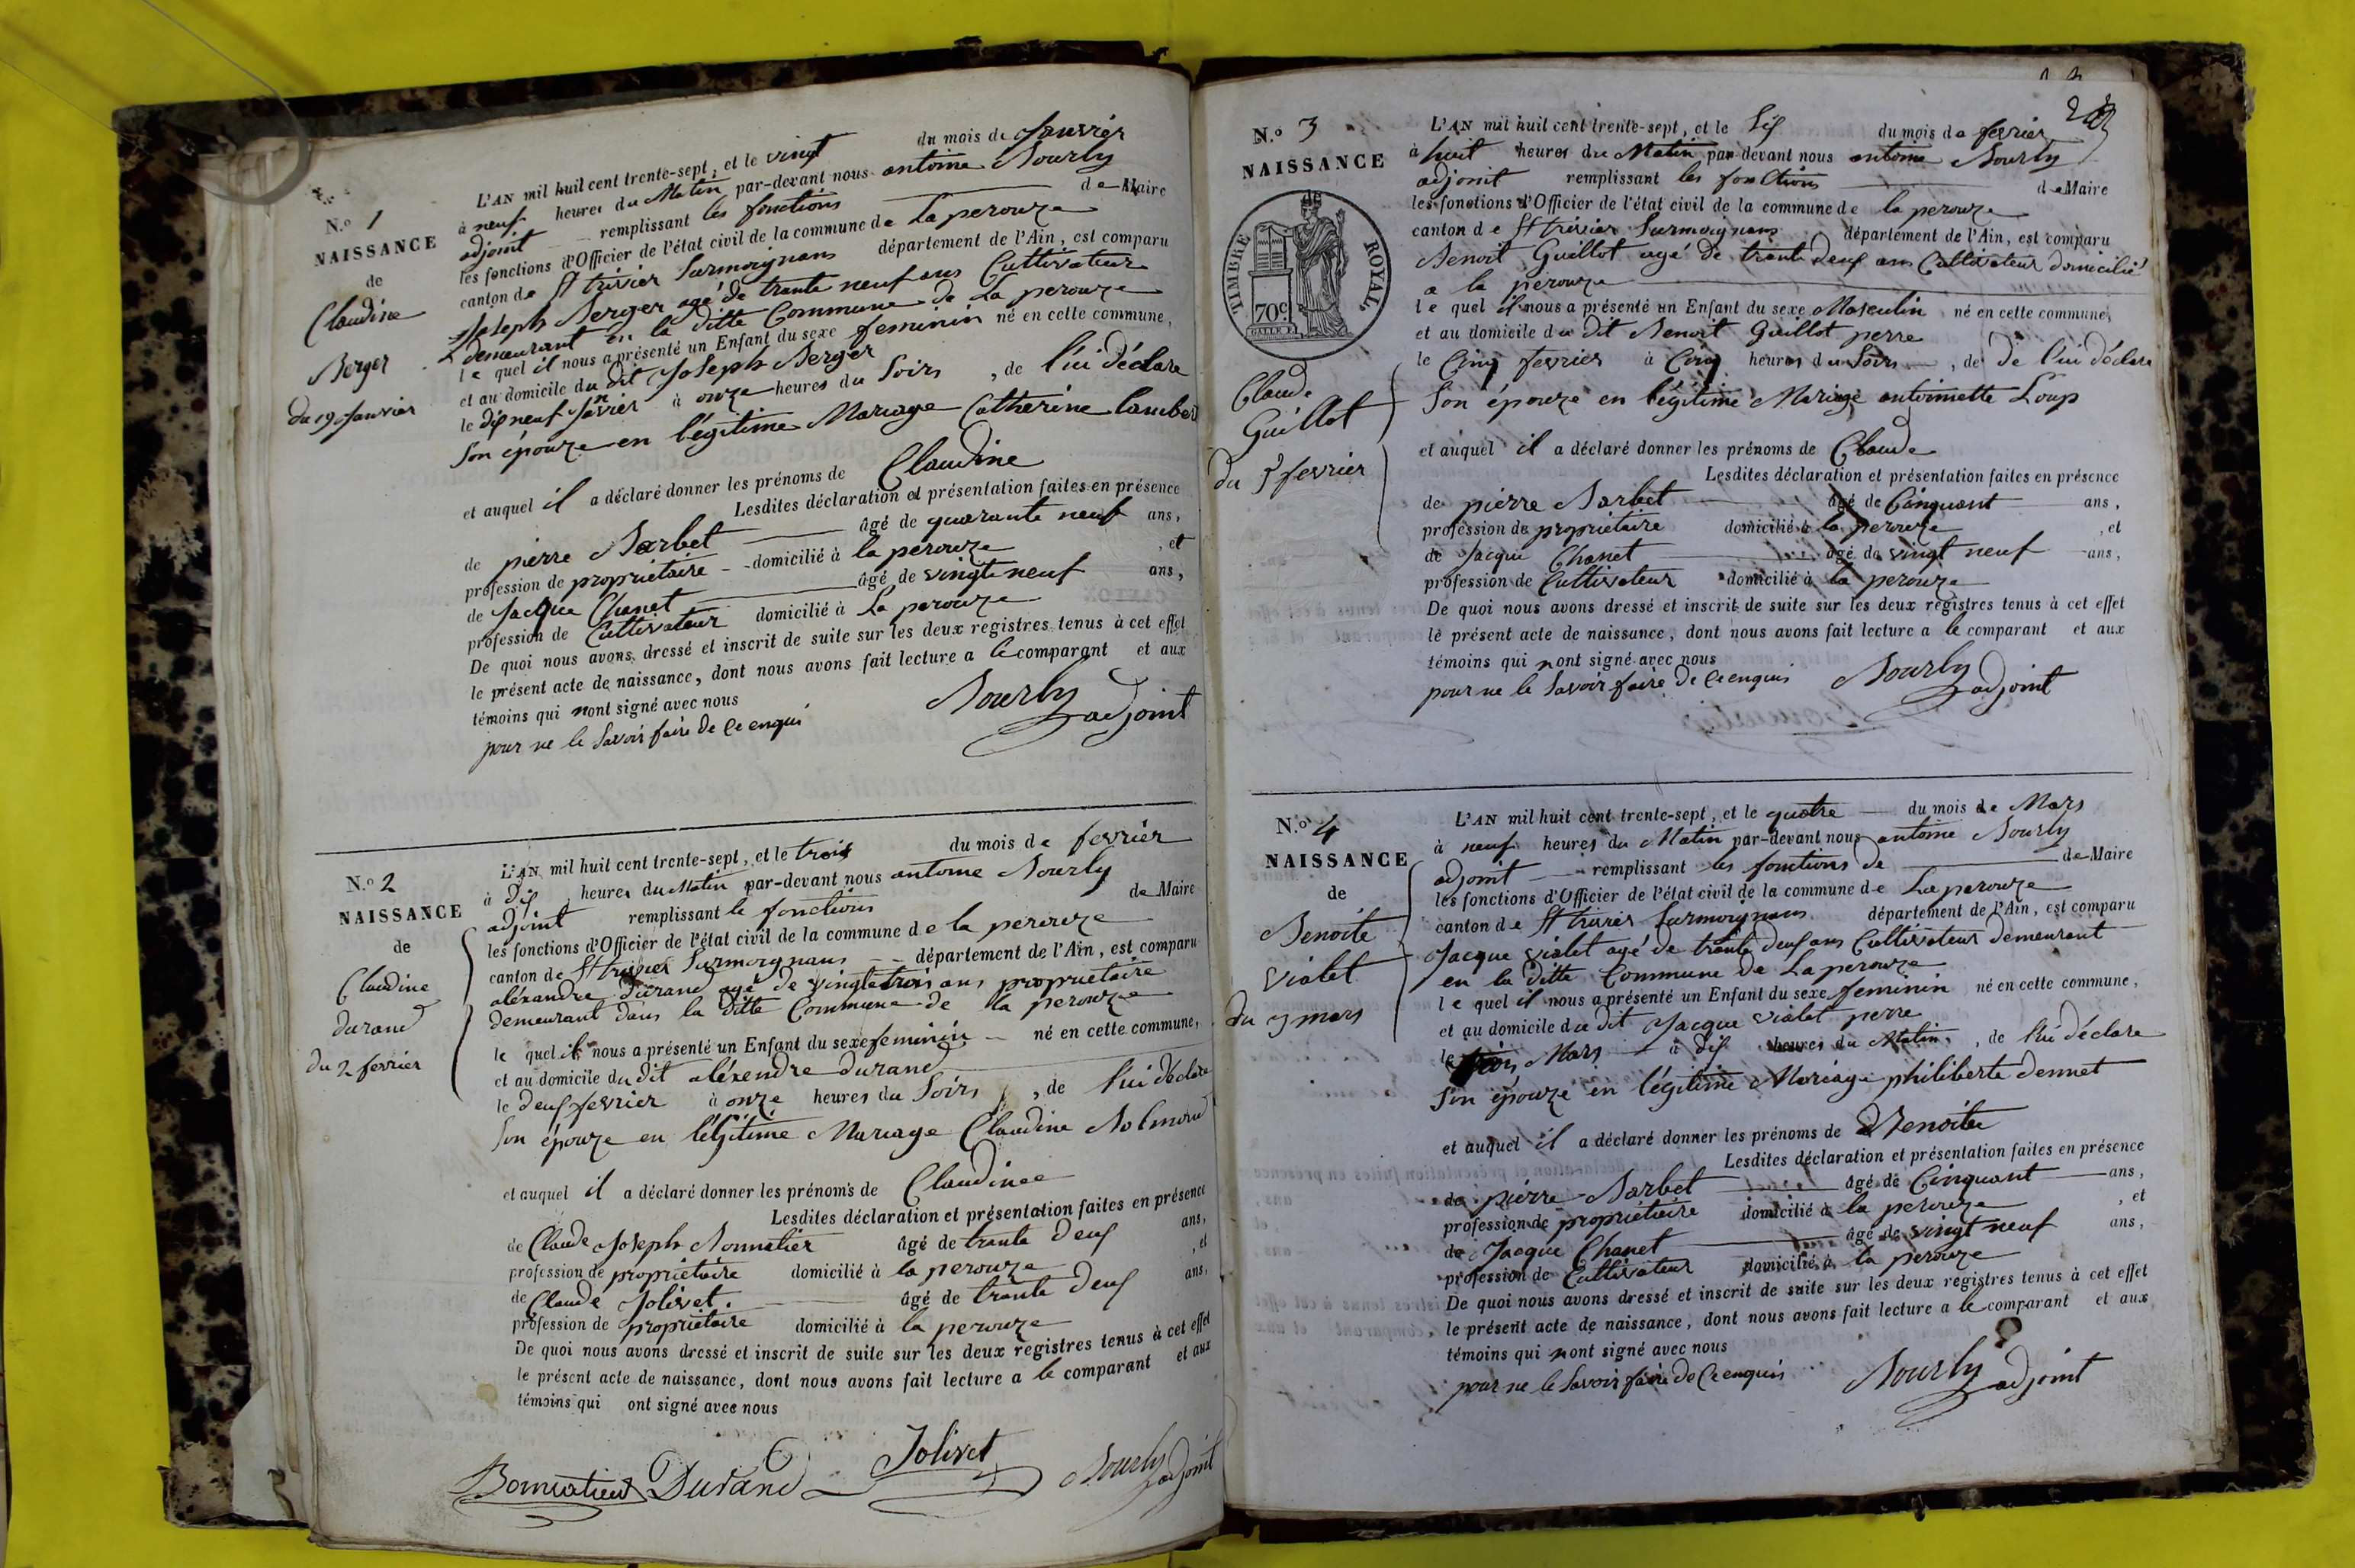 N.o 1
NAISSANCE
de
Claudine
Berger
du 19 Janvier
L'AN mil huit cent trente-sept, et le vingt du mois de Janvier
à neuf heures du Matin par-devant nous antoine Bourly
adjoint remplissant les fonctions de Maire
les fonctions d'Officier de l'état civil de la commune de La perouze
canton de St trivier Surmoignans département de l'Ain, est comparu
Joseph Berger agé de trante neuf ans Cultivateur
demeurant en la ditte Commune de La perouze
le quel il nous a présenté un Enfant du sexe feminin né en cette commune,
et au domicile du dit Joseph Berger
le dix neuf Janvier à onze heures du Soirs, de lui déclare
Son épouze en légitime Mariage Catherine lambert
et auquel il a déclaré donner les prénoms de Claudine
Lesdites déclaration et présentation faites en présence
de pierre Barbet âgé de quarante neuf ans,
profession de propriétaire domicilié à la perouze, et
de Jacque Chanet âgé de vingt neuf ans,
profession de Cultivateur domicilié à La perouze
De quoi nous avons dressé et inscrit de suite sur les deux registres tenus à cet effet
le présent acte de naissance, dont nous avons fait lecture a le comparant et aux
témoins qui n ont signé avec nous
pour ne le Savoir faire de ce enqui
Bourly adjoint
N.o 2
NAISSANCE
de
Claudine
durand
du 2 fevrier
L'AN mil huit cent trente-sept, et le trois du mois de fevrier
à dix heures du Matin par-devant nous antoine Bourly
adjoint remplissant le fonctions de Maire
les fonctions d'Officier de l'état civil de la commune de la perouze
canton de St trivier Surmoignans département de l'Ain, est comparu
aléxandre durand agé de vingt trois ans propriétaire
demeurant dans la ditte Commune de la perouze
le quel il nous a présenté un Enfant du sexe feminin né en cette commune,
et au domicile du dit aléxendre durand
le deux fevrier à onze heures du Soirs, de lui déclare
Son épouze en légitime Mariage Claudine
et auquel il a déclaré donner les prénoms de Claudine
Lesdites déclaration et présentation faites en présence
de Claude Joseph Bonnatier âgé de trante deux ans,
profession de propriétaire domicilié à la perouze, et
de Claude Jolivet. âgé de trante deux ans,
profession de propriétaire domicilié à la perouze
De quoi nous avons dressé et inscrit de suite sur les deux registres tenus à cet effet
le présent acte de naissance, dont nous avons fait lecture a le comparant et aux
témoins qui ont signé avec nous
Bonnatier Durand Jolivet Bourly adjoint
N.o 3
NAISSANCE
de
TIMBRE ROYAL
70c
Claude
Guillot
du 5 fevrier
L'AN mil huit cent trente-sept, et le Six du mois de fevrier
à huit heures du Matin par-devant nous antoine Bourly
adjoint remplissant les fonctions de Maire
les fonctions d'Officier de l'état civil de la commune de la perouze
canton de St trivier Surmoignans département de l'Ain, est comparu
Benoit Guillot agé de trante deux ans Cultivateur domicilié
a la perouze
le quel il nous a présenté un Enfant du sexe Masculin né en cette commune,
et au domicile du dit Benoit Guillot perre
le Cinq fevrier à Cinq heures du Soirs, de de lui déclare
Son épouze en légitime Mariage antoinette Loup
et auquel il a déclaré donner les prénoms de Claude
Lesdites déclaration et présentation faites en présence
de pierre Barbet âgé de Cinquant ans,
profession de propriétaire domicilié à la perouze, et
de Jacque Chanet âgé de vingt neuf ans,
profession de Cultivateur domicilié à la perouze
De quoi nous avons dressé et inscrit de suite sur les deux registres tenus à cet effet
le présent acte de naissance, dont nous avons fait lecture a le comparant et aux
témoins qui n ont signé avec nous
pour ne le Savoir faire de ce enquis
Bourly adjoint
N.o 4
NAISSANCE
de
Benoite
violet
du 3 mars
L'AN mil huit cent trente-sept, et le quatre du mois de Mars
à neuf heures du Matin par-devant nous antoine Bourly
adjoint remplissant les fonctions de de Maire
les fonctions d'Officier de l'état civil de la commune de La perouze
canton de St trivier Surmoignans département de l'Ain, est comparu
Jacque violet agé de trante deux ans Cultivateur demeurant
en la ditte Commune de La perouze
le quel il nous a présenté un Enfant du sexe feminin né en cette commune,
et au domicile du dit Jacque violet perre
le trois Mars à dix heures du Matin, de lui déclare
Son épouze en légitime Mariage philiberte dennet
et auquel il a déclaré donner les prénoms de Benoite
Lesdites déclaration et présentation faites en présence
de pierre Barbet âgé de Cinquant ans,
profession de propriétaire domicilié à la perouze, et
de Jacque Chanet âgé de vingt neuf ans,
profession de Cultivateur domicilié à la perouze
De quoi nous avons dressé et inscrit de suite sur les deux registres tenus à cet effet
le présent acte de naissance, dont nous avons fait lecture a le comparant et aux
témoins qui n ont signé avec nous
pour ne le Savoir faire de ce enquis
Bourly adjoint